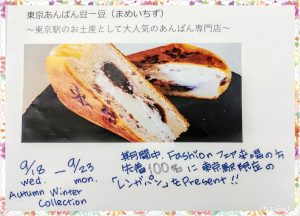 東京あんぱん豆一豆（まめいちず）
～東京駅のお土産として大人気のあんぱん専門店～
9/18 — 9/23
wed. mon.
Autumn Winter
Collection
期間中、Fashionフェア来場の方
先着100名に東京駅限定の
「レンガパン」をPresent!!